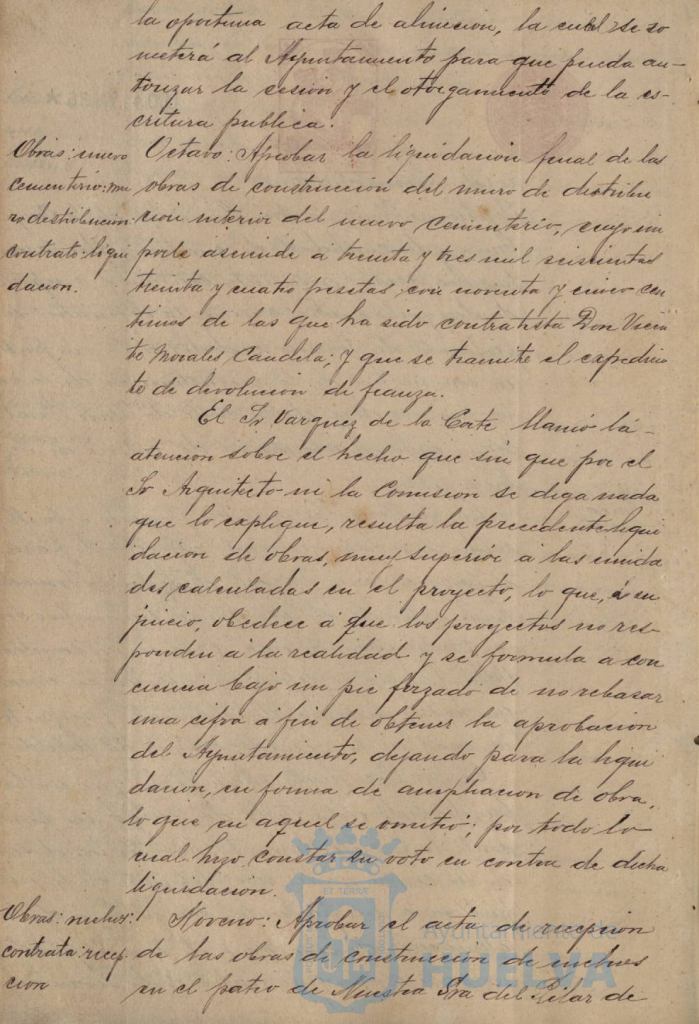 la oportuna acta de alineción, la cual se so
meterá al Ayuntamiento para que pueda au-
torizar la cesión y el otorgamiento de la es-
critura publica.
Obras: nuevo
cementerio: mu
ro destribucion
contrato: liqui
dacion.
Octavo: Aprobar la liquidación final de las
obras de construcción del muro de distribu
ción interior del nuevo cementerio, cuyo im
porte asciende á treinta y tres mil seiscientas
treinta y cuatro pesetas con noventa y cinco cen
timos de las que ha sido contratista Don Vicen
te Morales Candela; y que se tramite el expedien
te de devolución de fianza.
El Sr Vazquez de la Corte llamó la
atención sobre el hecho que sin que por el
Sr Arquitecto ni la Comisión se diga nada
que lo explique, resulta la precedente liqui
dación de obras, muy superior á las unida
des calculadas en el proyecto, lo que, á su
juicio, obedece á que los proyectos no res-
ponden á la realidad y se formula a con
ciencia bajo un pie forzado de no rebasar
una cifra á fin de obtener la aprobación
del Ayuntamiento, dejando para la liqui
dación, en forma de ampliación de obra,
lo que en aquel se omitió; por todo lo
cual hizo constar su voto en contra de dicha
liquidación.
Obras: nichos:
contrata: recep
cion
Noveno: Aprobar el acta de recepción
de las obras de construcción de nichos
en el patio de Nuestra Sra del Pilar de
Ayuntamiento de
HUELVA